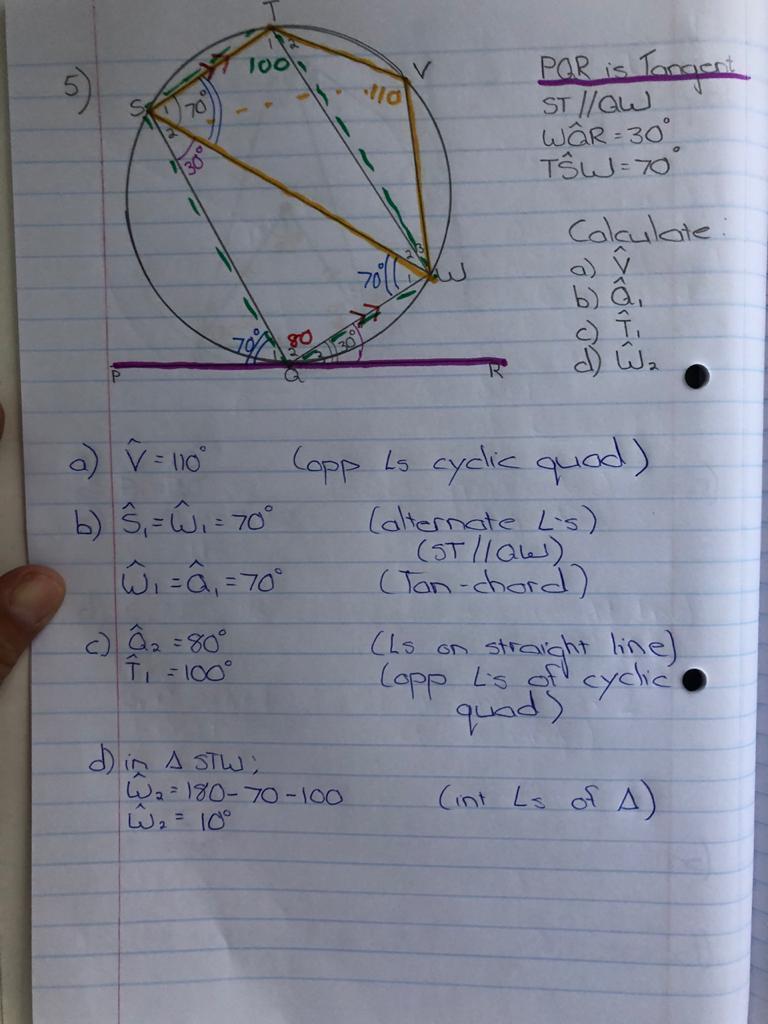 5)
T
V
S
W
P
Q
R
1
2
100
110
1
70°
2
30°
2
3
70°
1
70°
1
80
2
3
30°
PQR is Tangent
ST//QW
WQ̂R = 30°
TŜW = 70°
Calculate:
a) V̂
b) Q̂₁
c) T̂₁
d) Ŵ₂
a) V̂ = 110° (opp ∠s cyclic quad)
b) Ŝ₁ = Ŵ₁ = 70° (alternate ∠'s)
(ST//QW)
Ŵ₁ = Q̂₁ = 70° (Tan-chord)
c) Q̂₂ = 80° (∠s on straight line)
T̂₁ = 100° (opp ∠'s of cyclic
quad)
d) in Δ STW;
Ŵ₂ = 180 - 70 - 100 (int ∠s of Δ)
Ŵ₂ = 10°